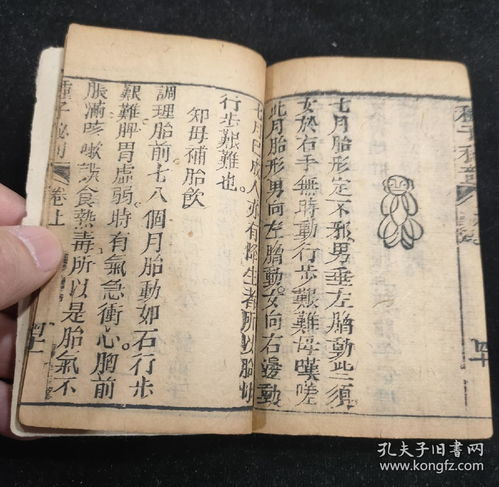 七月胎形定不邪男垂左脇動些須
女於右手無時動行步艱難母嘆嗟
此月胎形男向左脇動女向右邊動
七月已成人亦有降生者所以胎母
行步艱難也
知母補胎飲
調理胎前七八個月胎動如石行步
艱難脾胃虛弱時有氣急衝心胸前
脹滿咳嗽誤食熱毒所以是胎氣不
種子 卷上
孔夫子旧书网
www.kongfz.com